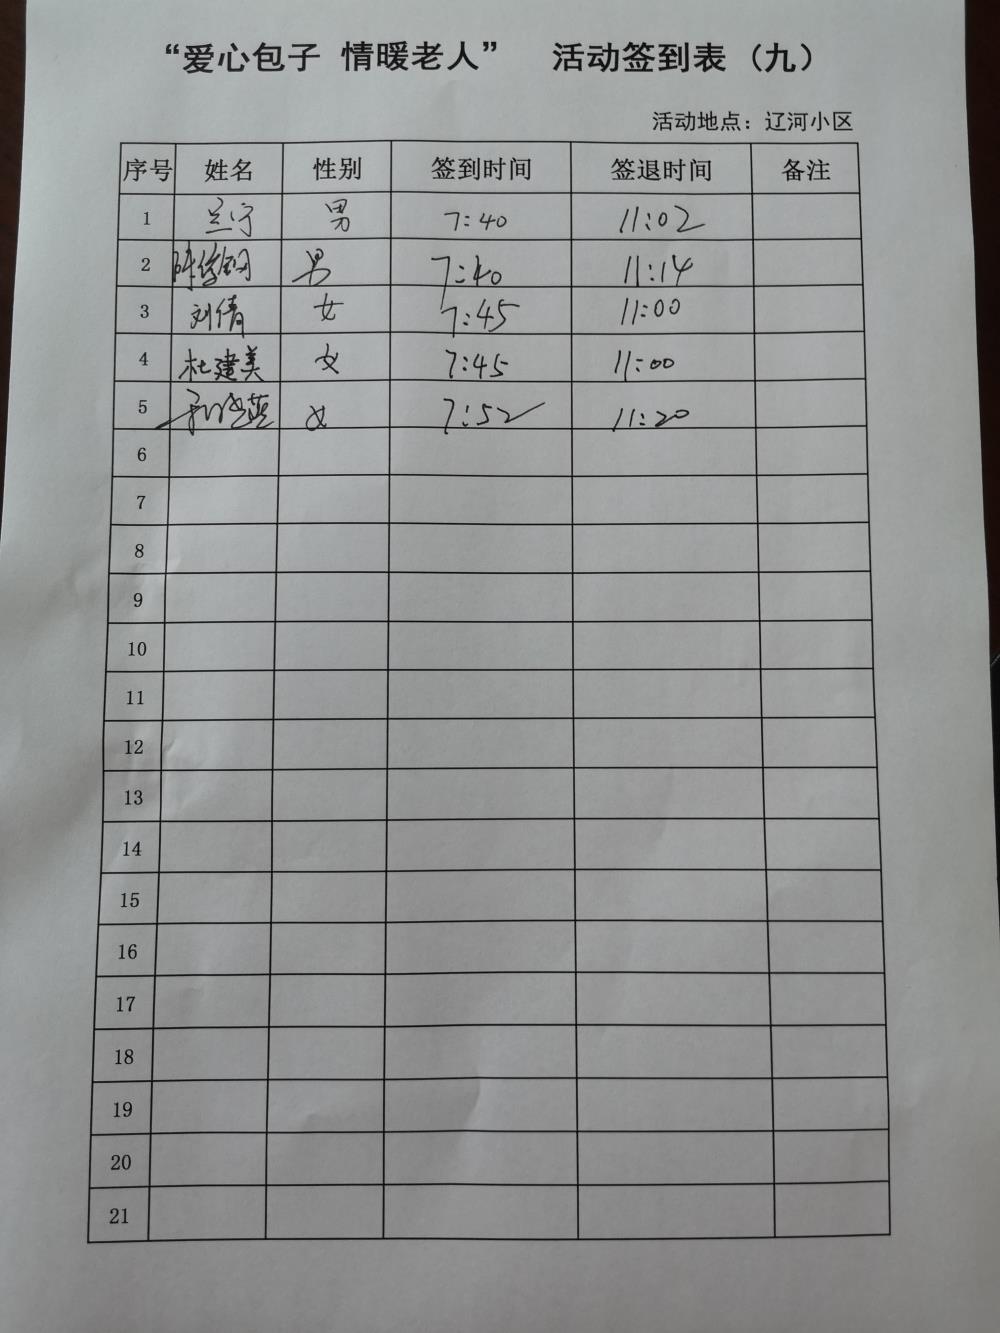 “爱心包子 情暖老人” 活动签到表（九）
活动地点：辽河小区
序号 姓名 性别 签到时间 签退时间 备注
1 兰宁 男 7:40 11:02
2 男 7:40 11:14
3 刘倩 女 7:45 11:00
4 杜建美 女 7:45 11:00
5 女 7:52 11:20
6
7
8
9
10
11
12
13
14
15
16
17
18
19
20
21